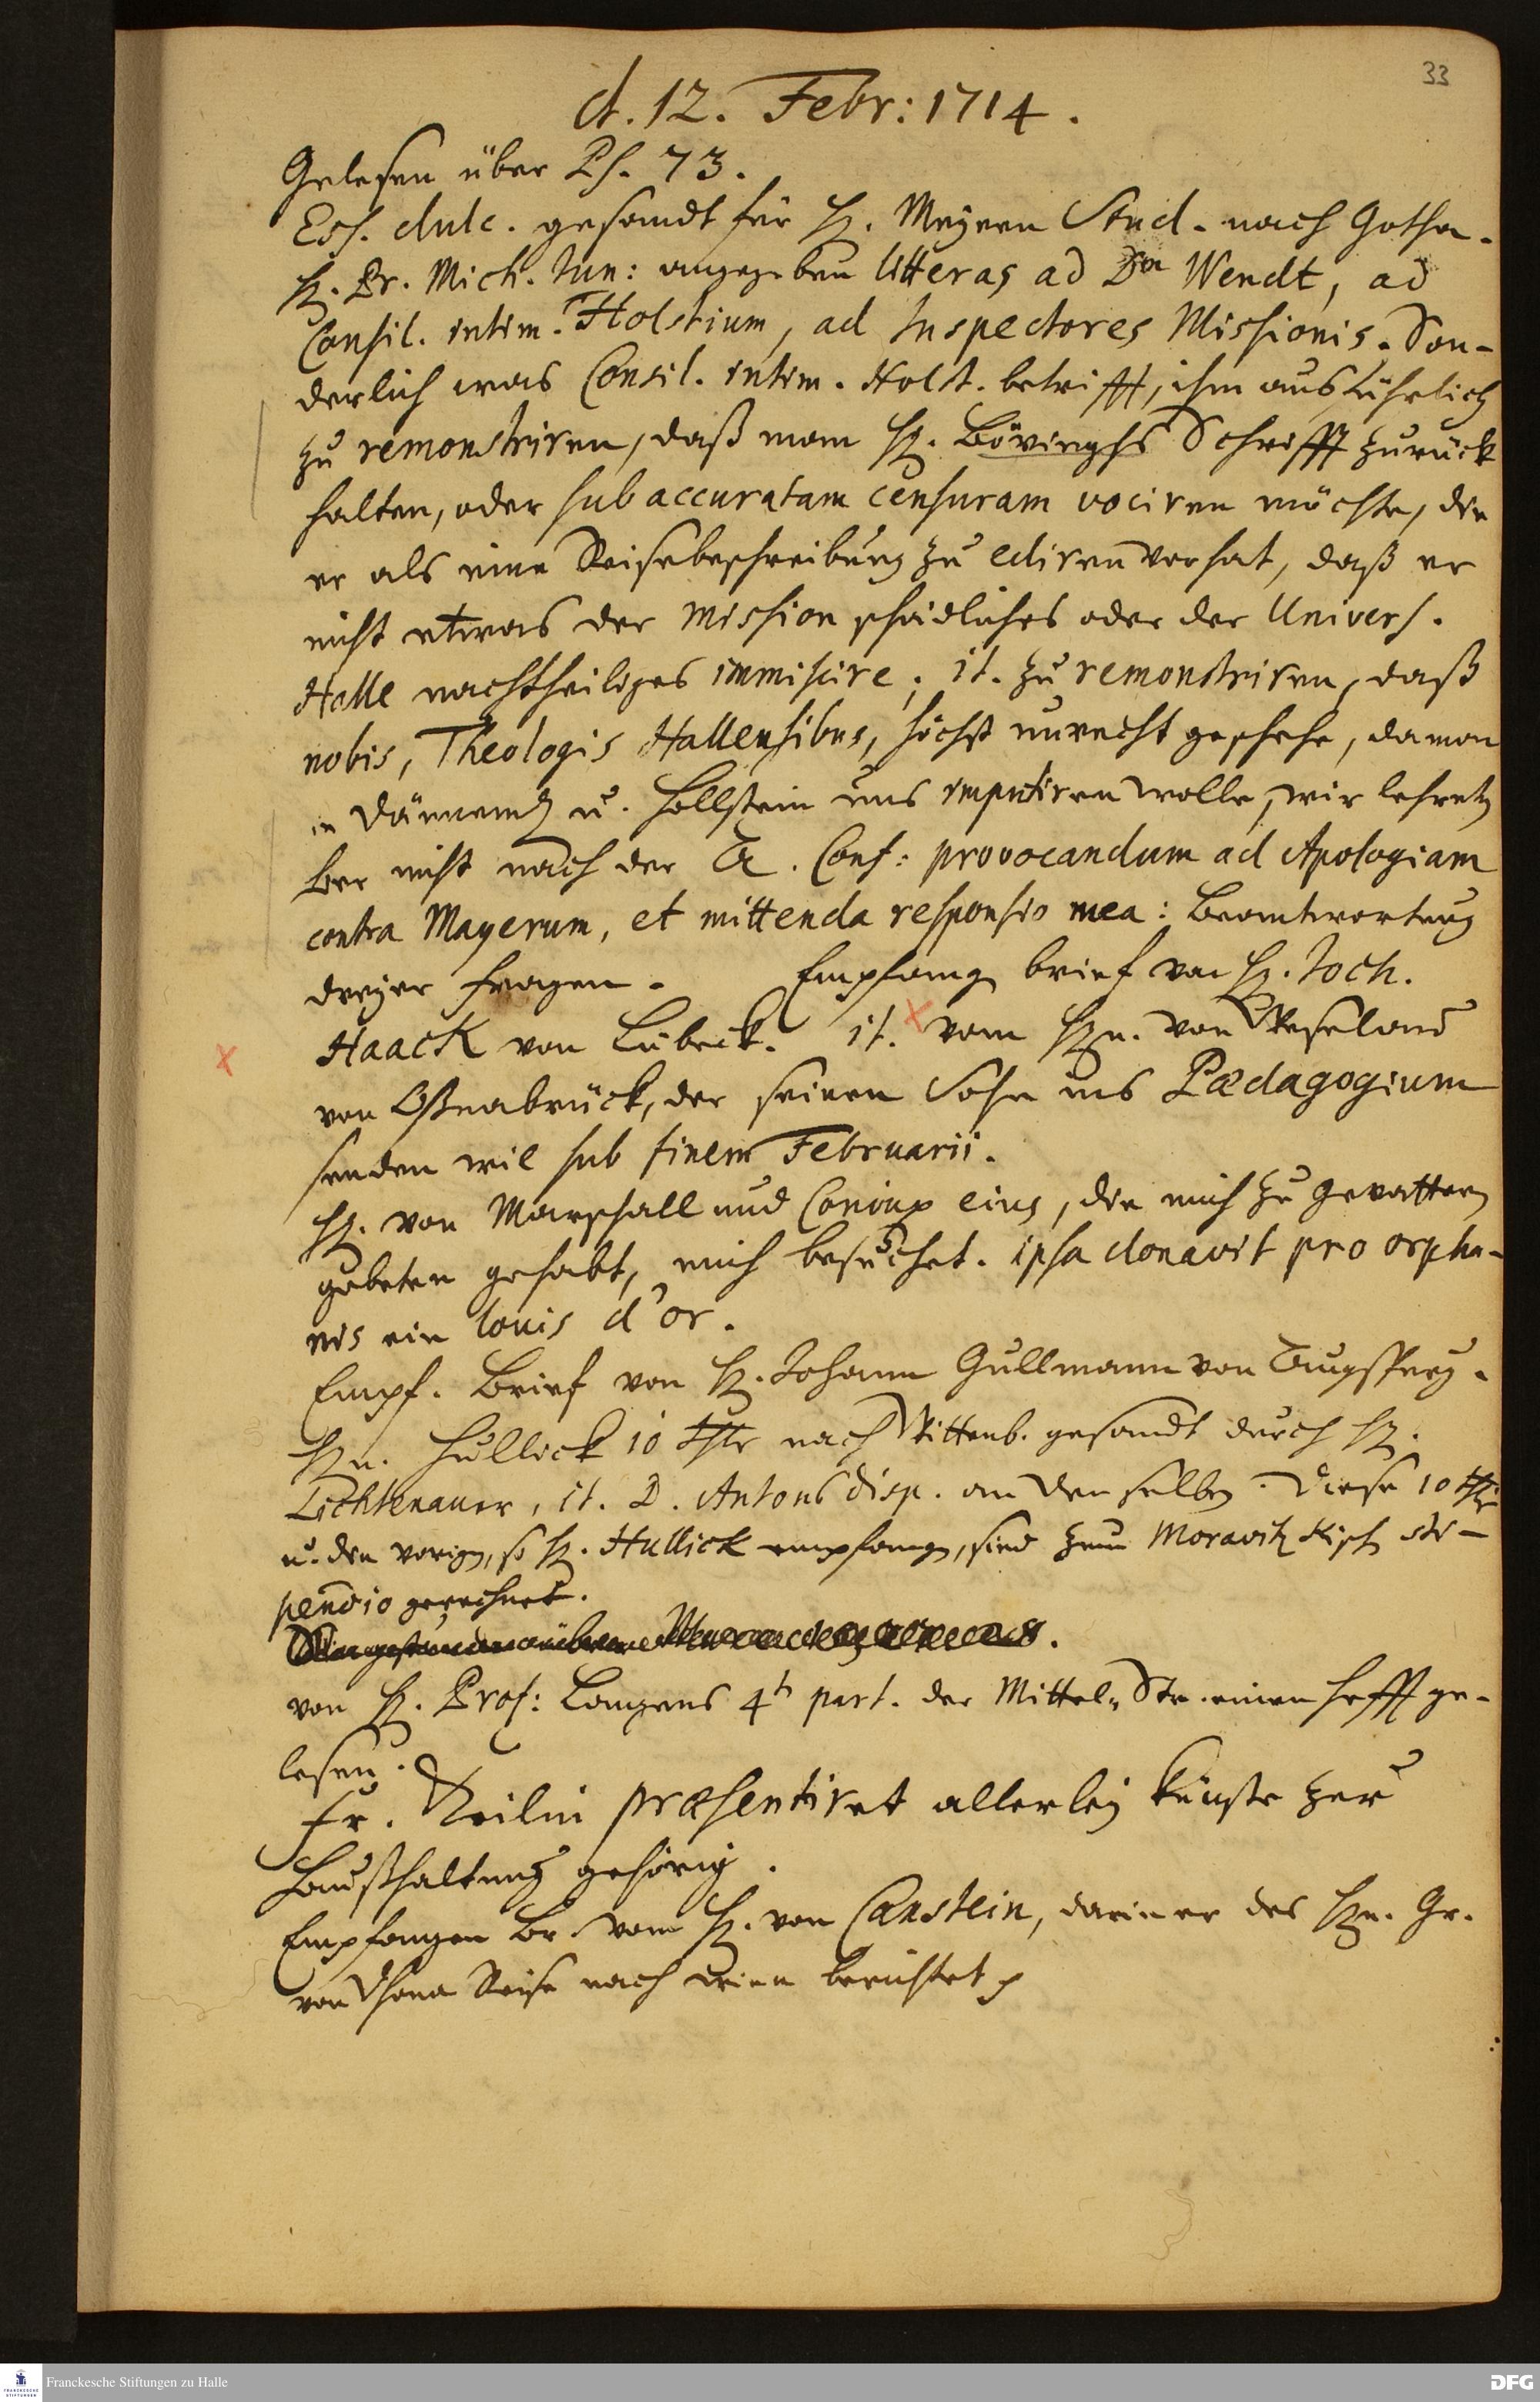 33
d. 12. Febr: 1714.
Gelesen über Ps. 73.
Ess. dulc. gesandt für H. Meyern Stud. nach Gotha.
H. Dr. Mich. Jun: angegeben litteras ad D. Wendt, ad
Consil. intim. Holstium, ad Inspectores Missionis. Son-
derlich was Consil. intim. Holst. betrifft, ihm ausführlich
zu remonstriren, daß man H. Bövinghs Schrifft zurück
halten, oder sub accuratam censuram vociren möchte, die
er als eine Reisebeschreibung zu ediren vorhat, daß er
nicht etwas der Mission schädliches oder der Univers.
Halle nachtheiliges immiscire; it. zu remonstriren, daß
nobis, Theologis Hallensibus, höchst unrecht geschehe, da man
in Dännemk u. Hollstein uns imputiren wolle, wir lehreten
hier nicht nach der A. Conf: provocandum ad Apologiam
contra Mayerum, et mittenda responsio mea: Beantwortung
dreyer Fragen. Empfang brief von H. Joch.
Haack von Lübeck. it. vom Hrn. von
von Oßnabrück, der seinen Sohn ins Pædagogium
senden wil sub finem Februarii.
H. von Marschall und Coniux eius, die mich zu gevattern
gebeten gehabt, mich besuchet. ipsa donavit pro orpha-
nis ein louis d'or.
Empf. Brief von H. Johann Gullmann von Augspurg.
Hrn. Hullick 10 thlr nach Wittenb. gesandt durch H.
Lichtenauer, it. D. Antons disp. an denselben. Diese 10 thlr
u. den vorigen, so H. Hullick empfangen, sind zum Sti-
pendio gerechnet.
von H. Prof: Langens 4t part. der Mittel-Str. einen hefft ge-
lesen.
Fr. præsentiret allerley Künste zur
Haußhaltung gehörig.
Empfangen Br. vom H. von Canstein, darin er des Hrn. Gr.
von Dhona Reise nach Wien berichtet
Franckesche Stiftungen zu Halle
DFG